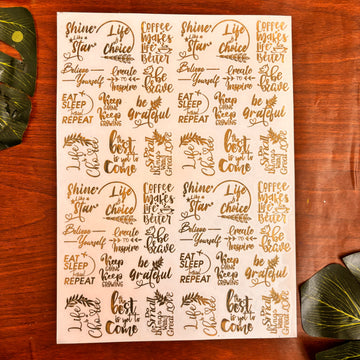 Shine
Like a
Star
Life
is a
Choice
Coffee
makes
life
Better
Shine
Like a
Star
Life
is a
Choice
Coffee
makes
life
Better
Believe
Yourself
Create
TO
Inspire
be
brave
Believe
Yourself
Create
TO
Inspire
be
brave
EAT
SLEEP
REPEAT
Keep
Keep
GROWING
be
Grateful
EAT
SLEEP
REPEAT
Keep
Keep
GROWING
be
Grateful
the
best
is yet to
Come
Small
things
With
Great Love
the
best
is yet to
Come
Small
things
With
Great Love
Shine
Like a
Star
Life
is a
Choice
Coffee
makes
life
Better
Shine
Like a
Star
Life
is a
Choice
Coffee
makes
life
Better
Believe
Yourself
Create
TO
Inspire
be
brave
Believe
Yourself
Create
TO
Inspire
be
brave
EAT
SLEEP
REPEAT
Keep
Keep
GROWING
be
Grateful
EAT
SLEEP
REPEAT
Keep
Keep
GROWING
be
Grateful
the
best
is yet to
Come
Small
things
With
Great Love
the
best
is yet to
Come
Small
things
With
Great Love